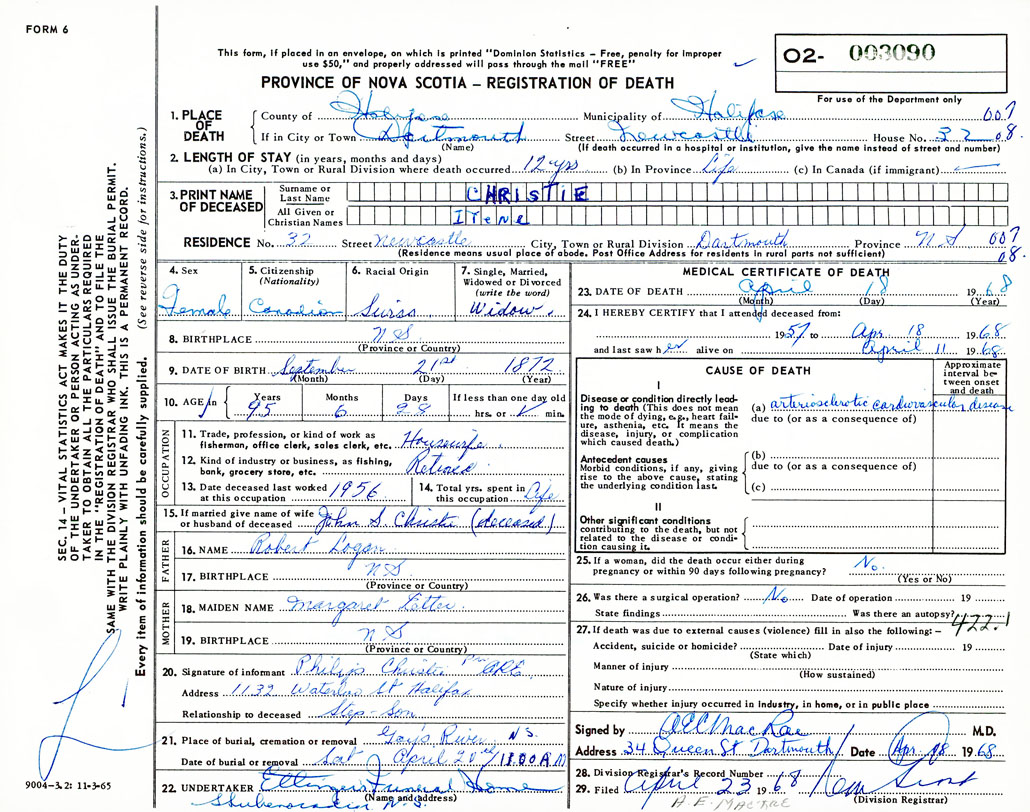 FORM 6
This form, if placed in an envelope, on which is printed "Dominion Statistics – Free, penalty for improper
use $50," and properly addressed will pass through the mail "FREE"
O2- 003090
For use of the Department only
PROVINCE OF NOVA SCOTIA – REGISTRATION OF DEATH
1. PLACE OF DEATH
County of Halifax Municipality of Halifax 007
If in City or Town Dartmouth Street Newcastle House No. 32 08.
(Name) (If death occurred in a hospital or institution, give the name instead of street and number)
2. LENGTH OF STAY (in years, months and days)
(a) In City, Town or Rural Division where death occurred 12 yrs (b) In Province Life (c) In Canada (if immigrant)
3. PRINT NAME OF DECEASED
Surname or Last Name CHRISTIE
All Given or Christian Names Irene
RESIDENCE No. 32 Street Newcastle City, Town or Rural Division Dartmouth Province N S 007
(Residence means usual place of abode. Post Office Address for residents in rural parts not sufficient) 08.
4. Sex Female
5. Citizenship (Nationality) Canadian
6. Racial Origin Swiss
7. Single, Married, Widowed or Divorced (write the word) Widow.
8. BIRTHPLACE N S
(Province or Country)
9. DATE OF BIRTH September 21st 1872
(Month) (Day) (Year)
10. AGE in Years 95 Months 6 Days 28 If less than one day old hrs. or min.
OCCUPATION
11. Trade, profession, or kind of work as fisherman, office clerk, sales clerk, etc. Housewife
12. Kind of industry or business, as fishing, bank, grocery store, etc. Retired
13. Date deceased last worked at this occupation 1956
14. Total yrs. spent in this occupation Life
15. If married give name of wife or husband of deceased John S. Christie (deceased)
FATHER
16. NAME Robert Logan
17. BIRTHPLACE N S
(Province or Country)
MOTHER
18. MAIDEN NAME Margaret
19. BIRTHPLACE N S
(Province or Country)
20. Signature of informant Philip Christie
Address 1132 Waterloo St Halifax
Relationship to deceased Step-Son
21. Place of burial, cremation or removal Gays River N.S.
Date of burial or removal Sat April 20th 11:00 A M
22. UNDERTAKER Ettinger Funeral Home
(Name and address)
Shubenacadie N.S.
MEDICAL CERTIFICATE OF DEATH
23. DATE OF DEATH April 18 1968
(Month) (Day) (Year)
24. I HEREBY CERTIFY that I attended deceased from:
1957 to Apr. 18 1968
and last saw her alive on April 11 1968
CAUSE OF DEATH
Approximate interval between onset and death
I
Disease or condition directly leading to death (This does not mean the mode of dying, e.g., heart failure, asthenia, etc. It means the disease, injury, or complication which caused death.)
(a) arteriosclerotic cardiovascular disease
due to (or as a consequence of)
Antecedent causes
Morbid conditions, if any, giving rise to the above cause, stating the underlying condition last.
(b)
due to (or as a consequence of)
(c)
II
Other significant conditions
contributing to the death, but not related to the disease or condition causing it.
25. If a woman, did the death occur either during pregnancy or within 90 days following pregnancy? No.
(Yes or No)
26. Was there a surgical operation? No Date of operation 19
State findings Was there an autopsy?
422.1
27. If death was due to external causes (violence) fill in also the following: –
Accident, suicide or homicide? Date of injury 19
(State which)
Manner of injury
(How sustained)
Nature of injury
Specify whether injury occurred in Industry, in home, or in public place
Signed by MacRae M.D.
Address 34 Queen St Dartmouth Date Apr. 18 1968
28. Division Registrar's Record Number
29. Filed April 23 1968
(Division Registrar)
SEC. 14 – VITAL STATISTICS ACT MAKES IT THE DUTY
OF THE UNDERTAKER OR PERSON ACTING AS UNDER-
TAKER TO OBTAIN ALL THE PARTICULARS REQUIRED
IN THE "REGISTRATION OF DEATH" AND TO FILE THE
SAME WITH THE DIVISION REGISTRAR WHO SHALL ISSUE THE BURIAL PERMIT.
WRITE PLAINLY WITH UNFADING INK. THIS IS A PERMANENT RECORD.
Every item of information should be carefully supplied. (See reverse side for instructions.)
9004–3.2: 11-3-65